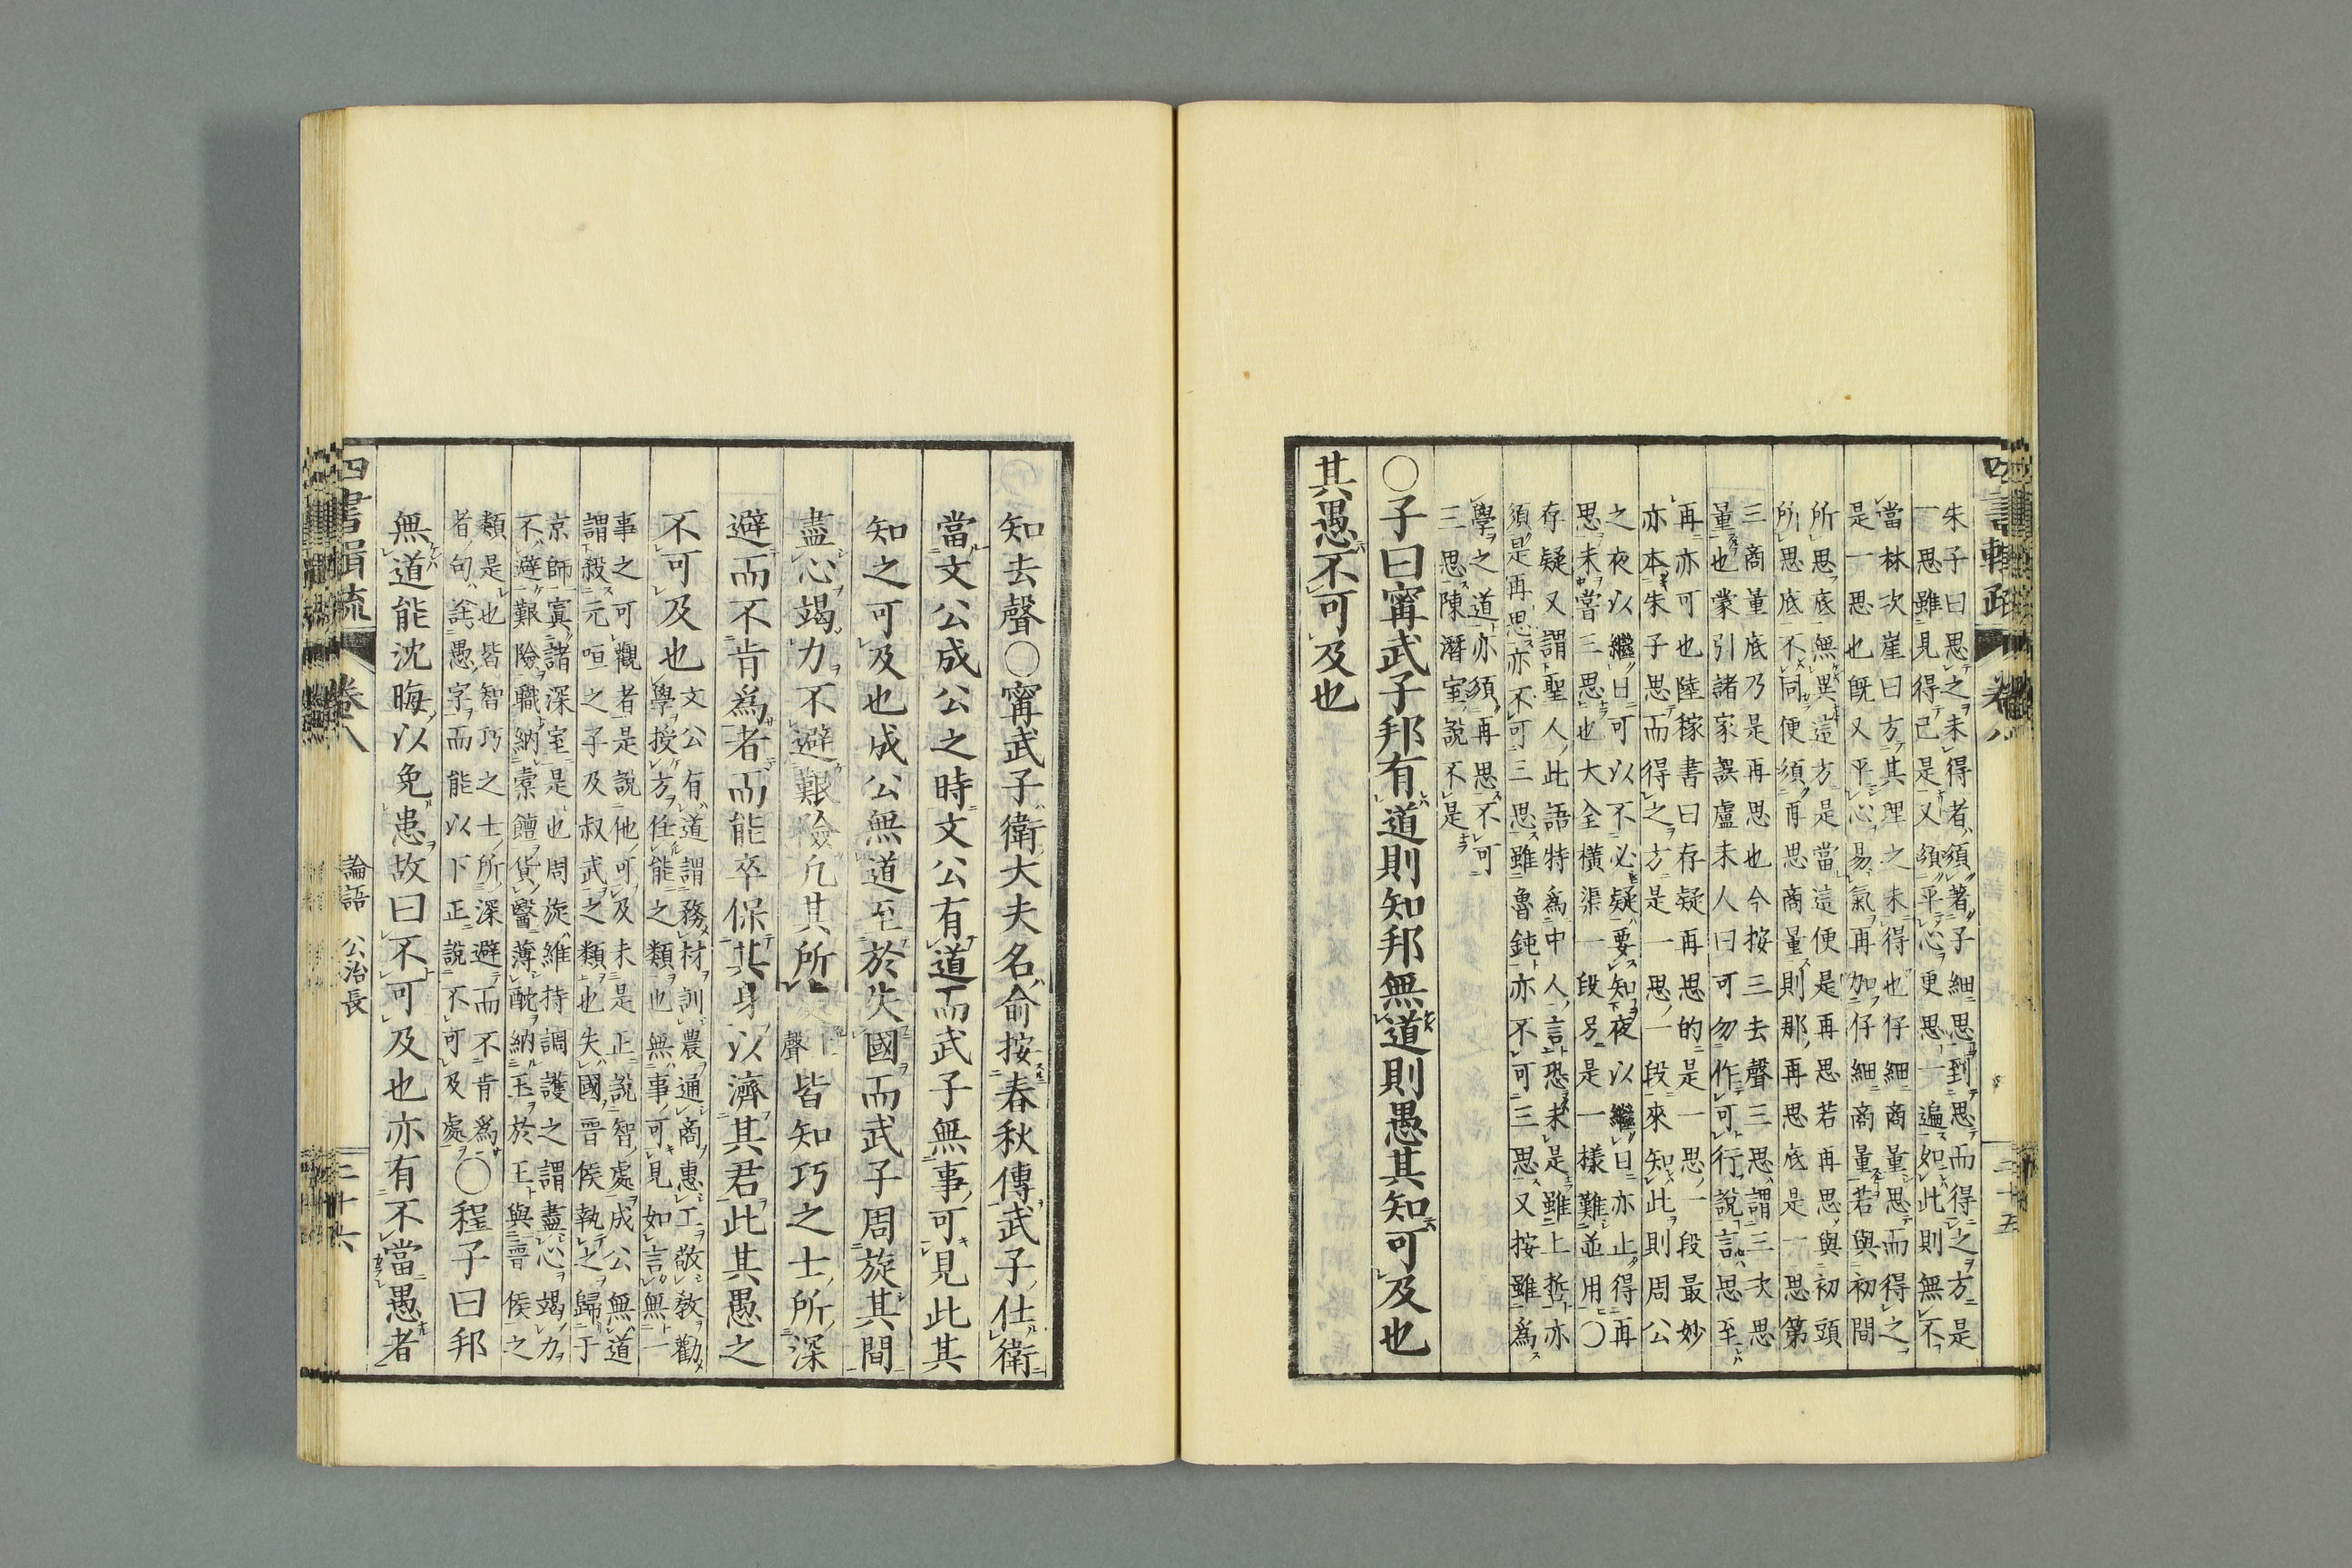 朱子曰思之未得者須著子細思到思而得之方是
一思雖見得已是又須平心更思一遍如此則無不
當林次崖曰方其理之未得也仔細商量思而得之
是一思也既又平心易氣再加仔細商量若與初間
所思底無異這方是當這便是再思若再思與初頭
所思底不同便須再思商量則那再思底是一思第
三商量底乃是再思也今按三去聲三思謂三次思
量也蒙引諸家誤盧未人曰可勿作可行說言思至
再亦可也陸稼書曰存疑再思的是一思一段最妙
亦本朱子思而得之方是一思一段來知此則周公
之夜以繼日可以不必疑要知夜以繼日亦止得再
思未嘗三思也大全橫渠一段另是一樣難並用〇
存疑又謂聖人此語特為中人言恐未是雖上哲亦
須是再思亦不可三思雖魯鈍亦不可三思又按雖為
學之道亦須再思不可
三思陳潛室說不是
〇子曰甯武子邦有道則知邦無道則愚其知可及也
其愚不可及也
四書輯疏 卷八 二十五
知去聲〇甯武子衛大夫名俞按春秋傳武子仕衛
當文公成公之時文公有道而武子無事可見此其
知之可及也成公無道至於失國而武子周旋其間
盡心竭力不避艱險凡其所 聲 皆知巧之士所深
避而不肯爲者而能卒保其身以濟其君此其愚之
不可及也
文公有道謂務材訓農通商惠工敬敎勸
學授方任能之類也無事可見如言無一
事之可觀者是說他可及未是正說智處成公無道
謂殺元咺之子及叔武之類也失國晋侯執之歸于
京師寘諸深室是也周旋維持調護之謂盡心竭力
不避艱險職納橐饘貨醫薄酖納玉於王與晋侯之
類是也皆智巧之士所深避而不肯爲
者句詮愚字而能以下正說不可及處
〇程子曰邦
無道能沈晦以免患故曰不可及也亦有不當愚者
四書輯疏 卷八 論語 公冶長 二十六